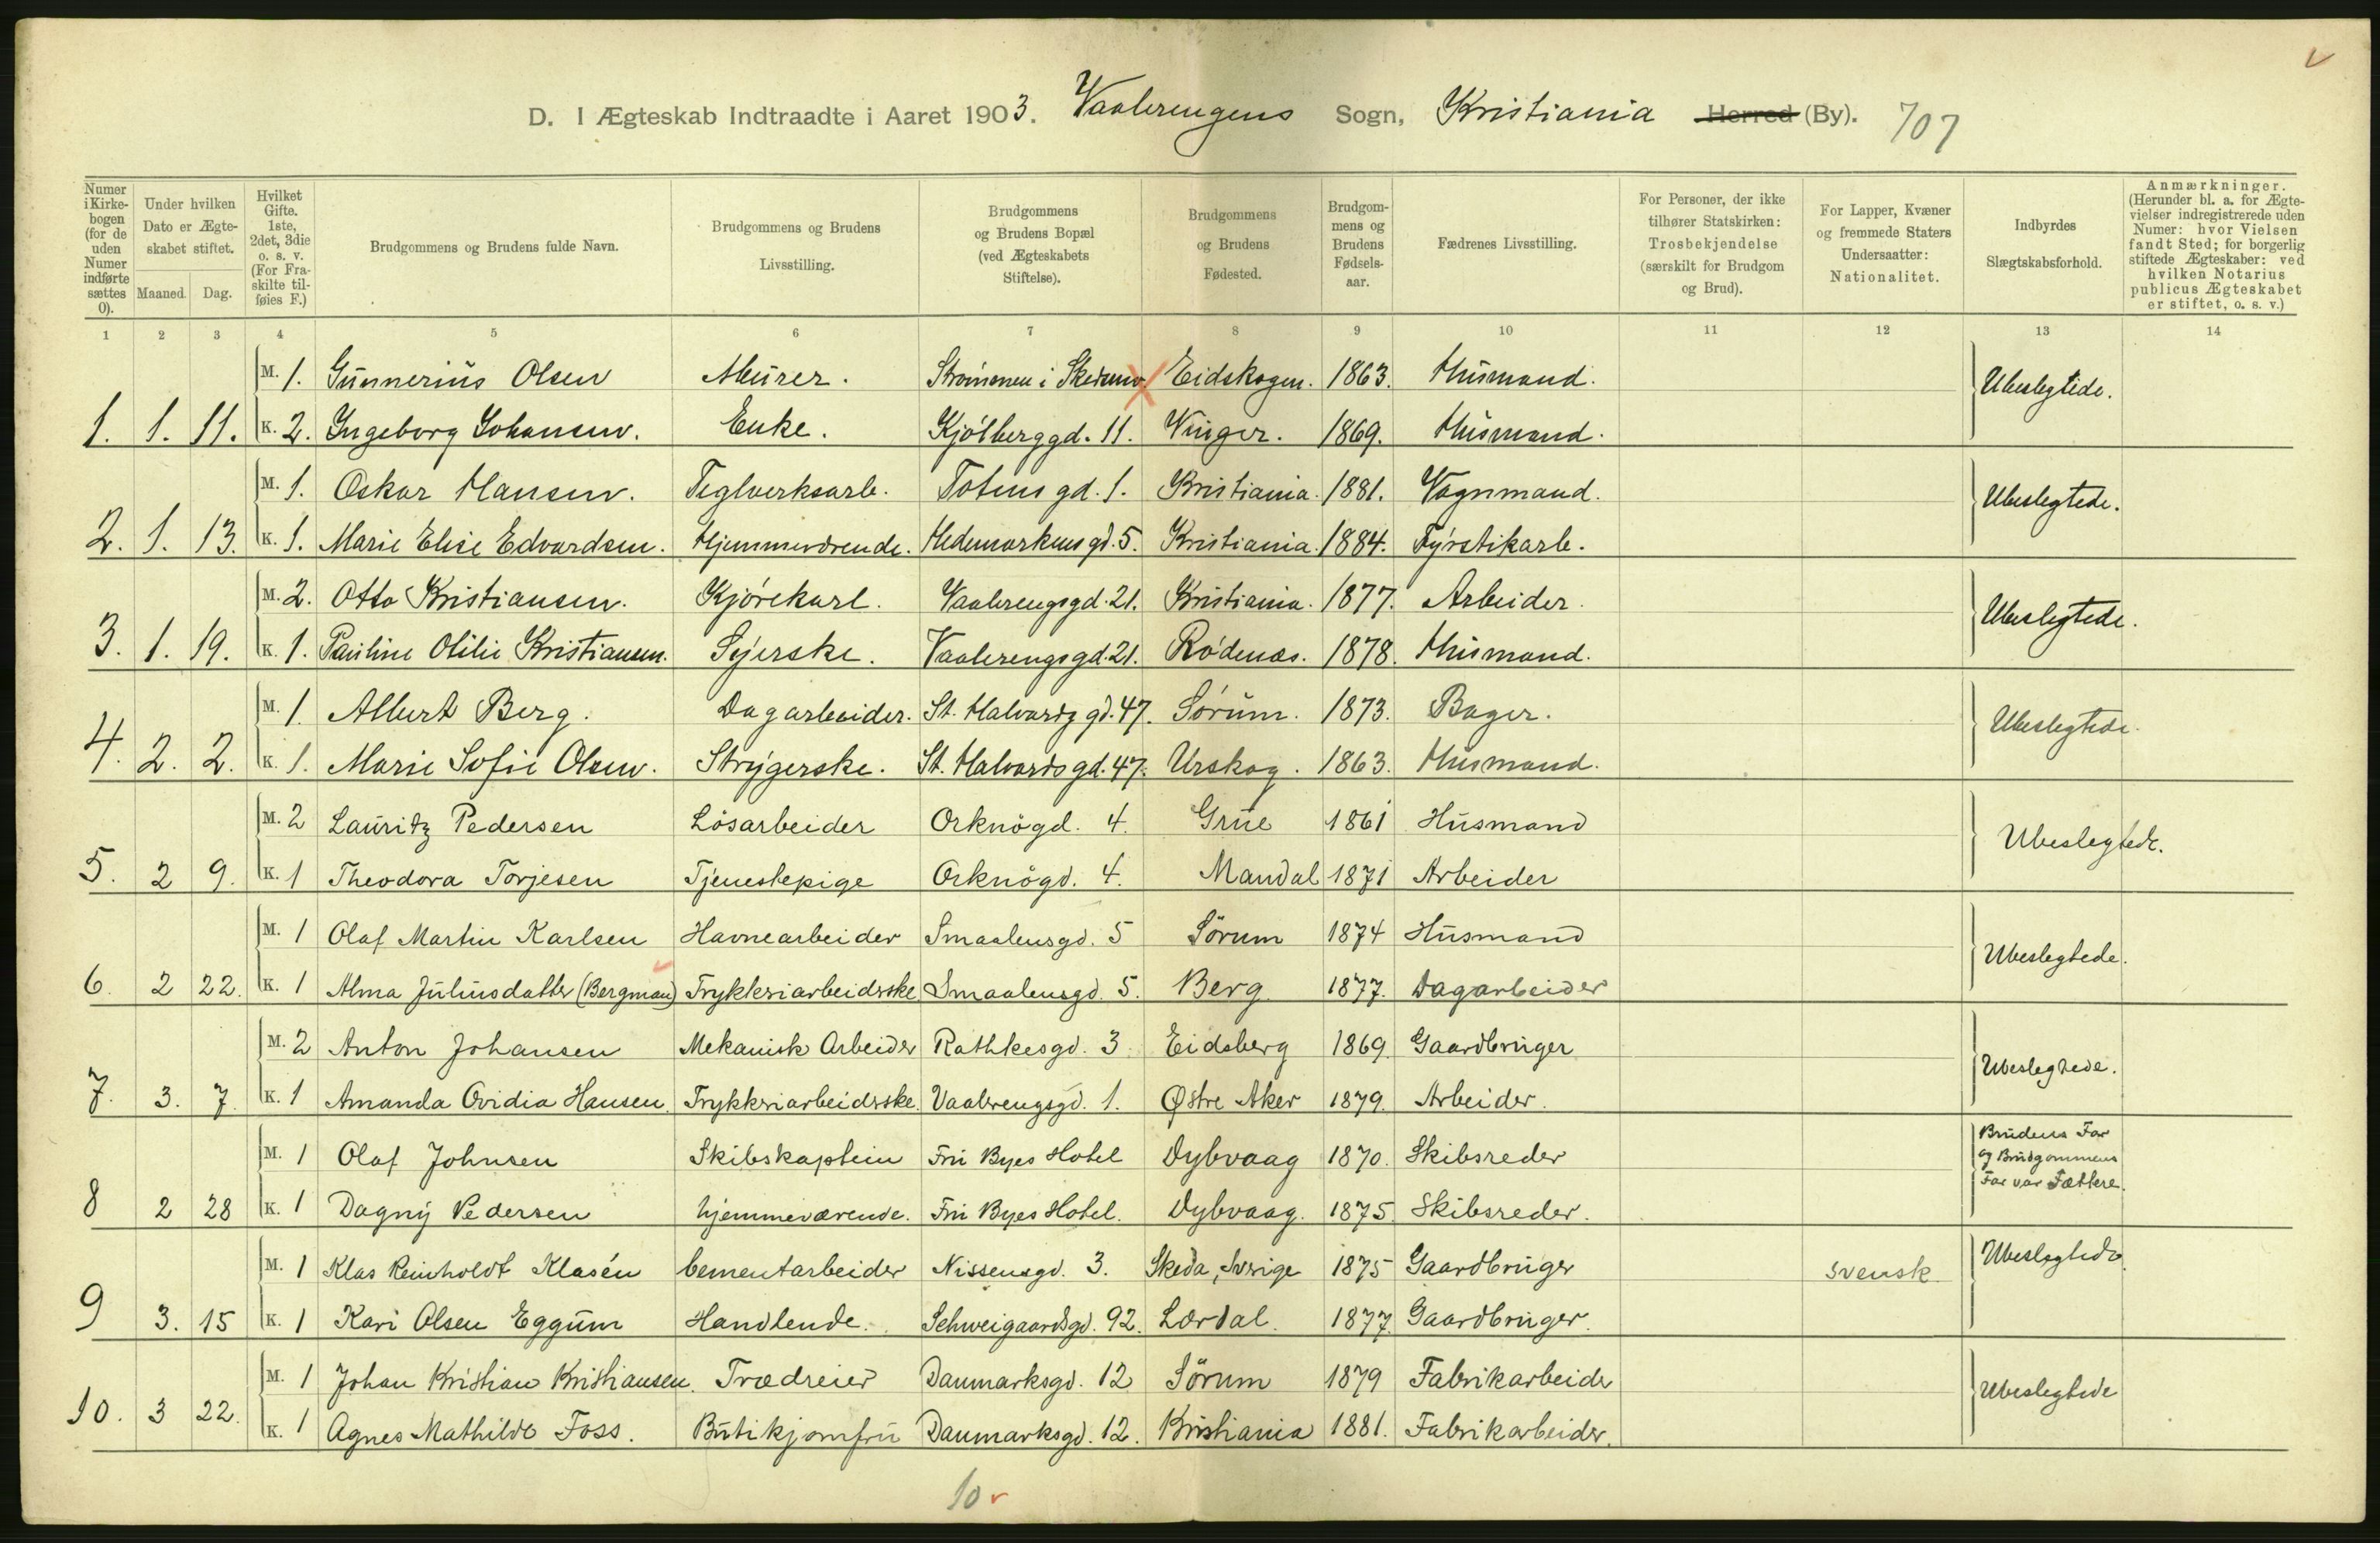 D. I Ægteskab Indtraadte i Aaret 1903. Vaalerengens Sogn, Kristiania Herred (By). 707
Numer i Kirke-bogen (for de uden Numer indførte sættes 0).
Under hvilken Dato er Ægte-skabet stiftet.
Maaned. Dag.
Hvilket Gifte. 1ste, 2det, 3die o. s. v. (For Fra-skilte til-føies F.)
Brudgommens og Brudens fulde Navn.
Brudgommens og Brudens Livsstilling.
Brudgommens og Brudens Bopæl (ved Ægteskabets Stiftelse).
Brudgommens og Brudens Fødested.
Brudgom-mens og Brudens Fødsels-aar.
Fædrenes Livsstilling.
For Personer, der ikke tilhører Statskirken: Trosbekjendelse (særskilt for Brudgom og Brud).
For Lapper, Kvæner og fremmede Staters Undersaatter: Nationalitet.
Indbyrdes Slægtskabsforhold.
Anmærkninger. (Herunder bl. a. for Ægte-vielser indregistrerede uden Numer: hvor Vielsen fandt Sted; for borgerlig stiftede Ægteskaber: ved hvilken Notarius publicus Ægteskabet er stiftet, o. s. v.)
1 2 3 4 5 6 7 8 9 10 11 12 13 14
M. 1. Gunnerius Olsen Murer. Strömmen i Skedsmo. Eidskogen. 1863. Husmand. Ubeslegtede.
1. 1. 11. K. 2. Ingeborg Johansen. Enke. Kjölberggd. 11. Vinger. 1869. Husmand.
M. 1. Oskar Hansen. Teglverksarb. Totensgd. 1. Kristiania. 1881. Vognmand. Ubeslegtede.
2. 1. 13. K. 1. Marie Elise Edvardsen. Hjemmeværende. Hedemarkensgd. 5. Kristiania. 1884. Fyrstikarb.
M. 2. Otto Kristiansen. Kjörekarl. Vaalerengsgd. 21. Kristiania. 1877. Arbeider. Ubeslegtede.
3. 1. 19. K. 1. Pauline Otilie Kristiansen. Syerske. Vaalerengsgd. 21. Rödenæs. 1878. Husmand.
M. 1 Albert Berg. Dagarbeider. St. Halvardsgd. 47. Sörum. 1873. Bager. Ubeslegtede.
4. 2. 2. K. 1. Marie Sofie Olsen. Strygerske. St. Halvardsgd. 47. Urskog. 1863. Husmand.
M. 2 Lauritz Pedersen Lösarbeider Orknögd. 4. Grue 1861 Husmand Ubeslegtede.
5. 2 9. K. 1 Theodora Torjesen Tjenestepige Orknögd. 4. Mandal 1871 Arbeider
M. 1 Olaf Martin Karlsen Havnearbeider Smaalensgd. 5 Sörum 1874 Husmand Ubeslegtede.
6. 2 22. K. 1 Alma Juliusdatter (Bergman) Trykkeriarbeidrske Smaalensgd. 5. Berg. 1877. Dagarbeider
M. 2 Anton Johansen Mekanisk Arbeider Rathkesgd. 3 Eidsberg 1869. Gaardbruger Ubeslegtede.
7. 3. 7. K. 1 Amanda Ovidia Hansen. Trykkeriarbeidrske. Vaalerengsgd. 1. Østre Aker 1879. Arbeider.
M. 1 Olaf Johnsen Skibskaptein Fru Byes Hotel Dybvaag 1870. Skibsreder Brudens Far og Brudgommens Far var Fættere.
8 2 28 K. 1 Dagny Pedersen hjemmeværende. Fru Byes Hotel. Dybvaag. 1875. Skibsreder.
M. 1 Klas Reinholdt Klasén Cementarbeider Nissensgd. 3. Skeda, Sverige 1875 Gaardbruger svensk. Ubeslegtede.
9 3. 15 K. 1 Kari Olsen Eggum Handlende. Schweigaardsgd. 92. Lærdal. 1877. Gaardbruger.
M. 1 Johan Kristian Kristiansen. Trædreier Danmarksgd. 12 Sörum 1879 Fabrikarbeider Ubeslegtede
10. 3 22. K. 1 Agnes Mathilde Foss. Butikjomfru Danmarksgd. 12. Kristiania 1881. Fabrikarbeider.
10